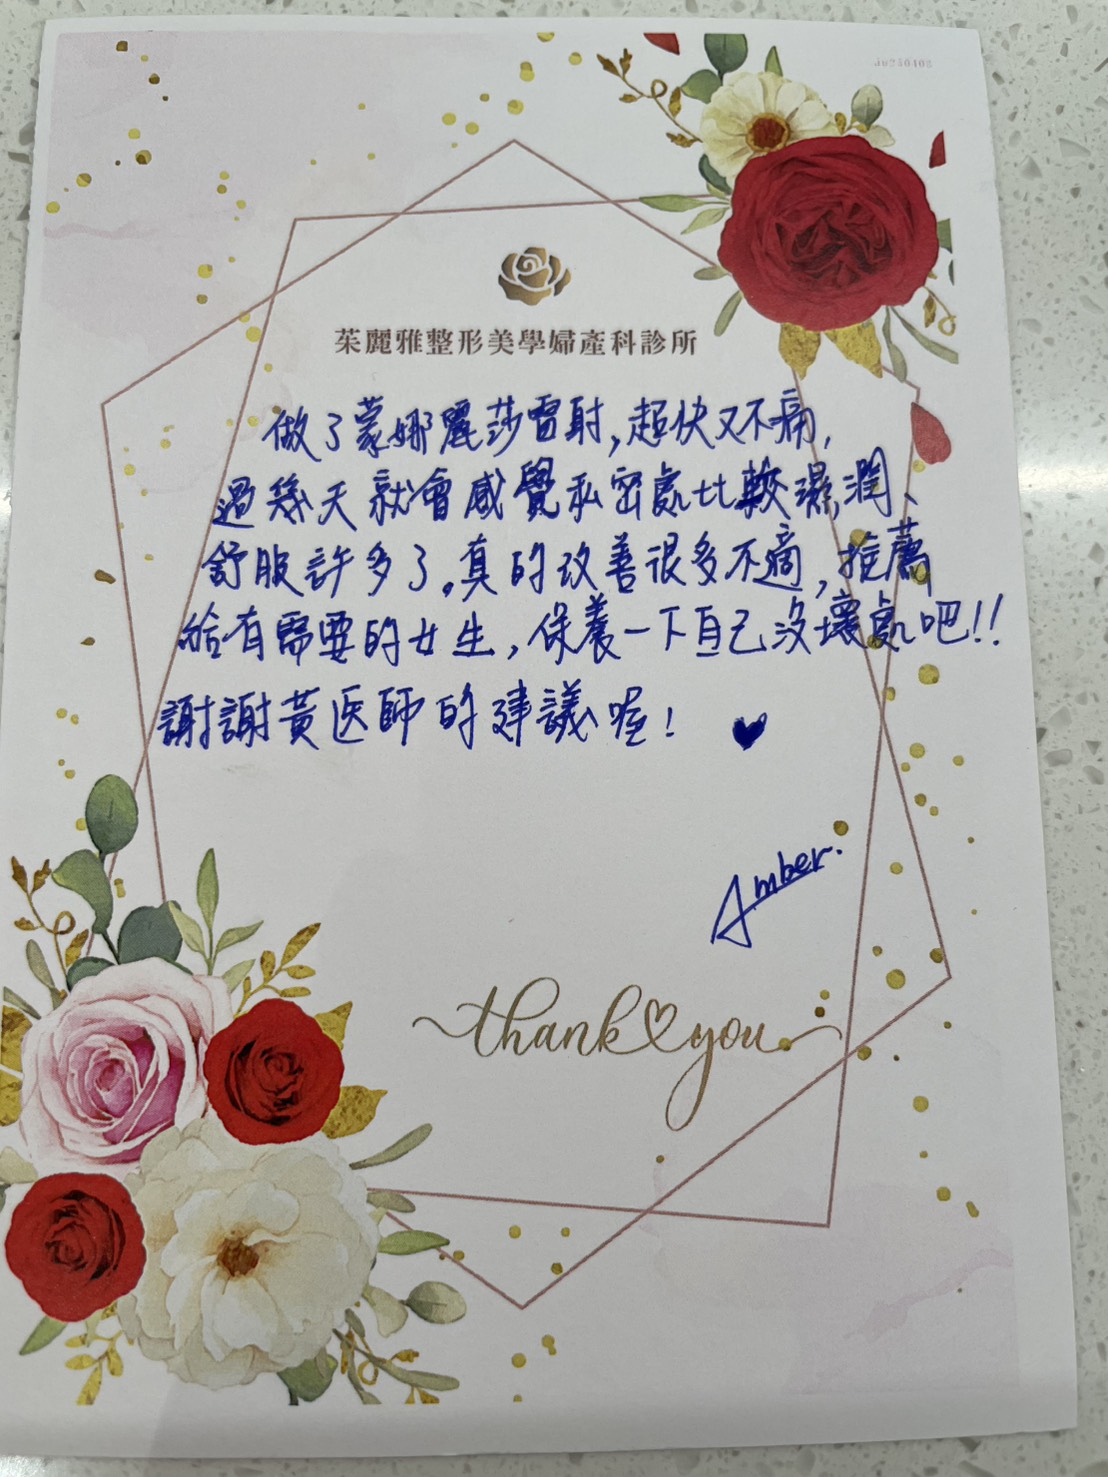 J0250402
茱麗雅整形美學婦產科診所
做了蒙娜麗莎雷射,超快又不痛,
過幾天就會感覺私密處比較濕潤、
舒服許多了。真的改善很多不適,推薦
給有需要的女生,保養一下自己沒壞處吧!!
謝謝黃医師的建議喔!
Amber.
thank you